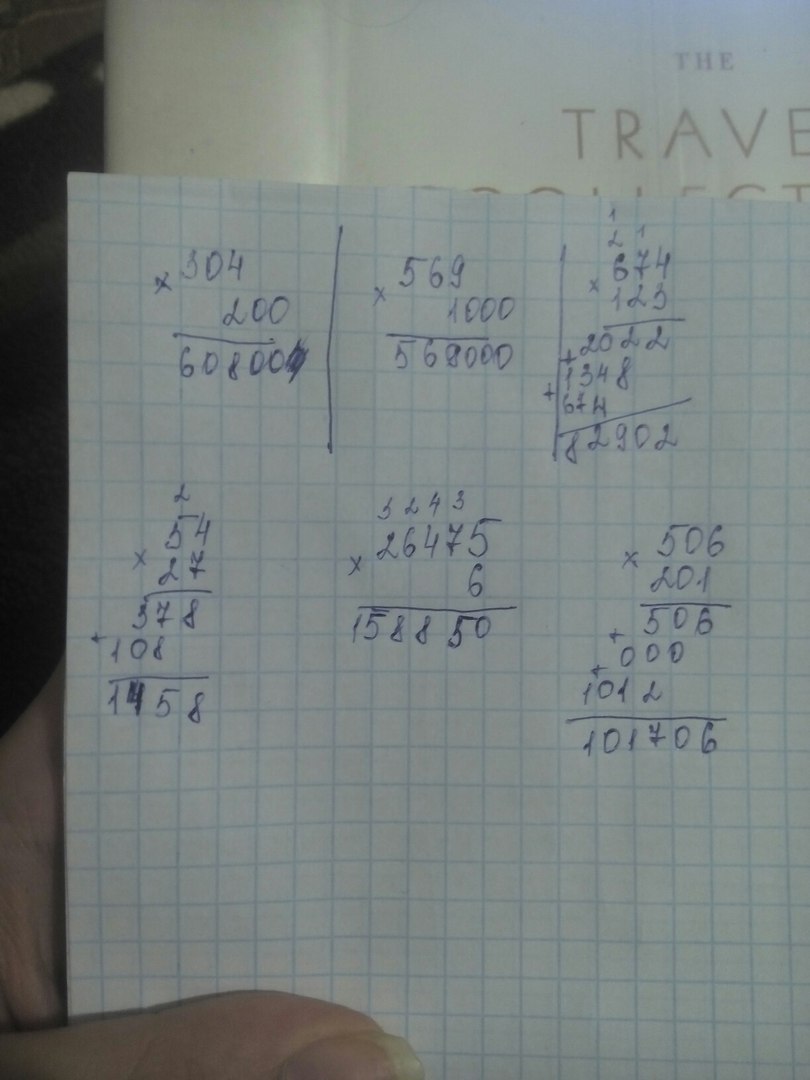 THE
TRAVE
× 304
200
60800
× 569
1000
569000
1
2 1
× 674
123
+ 2022
1348
+ 674
82902
2
54
× 27
378
+ 108
1458
3 2 4 3
26475
× 6
158850
506
× 201
506
+ 000
+ 1012
101706